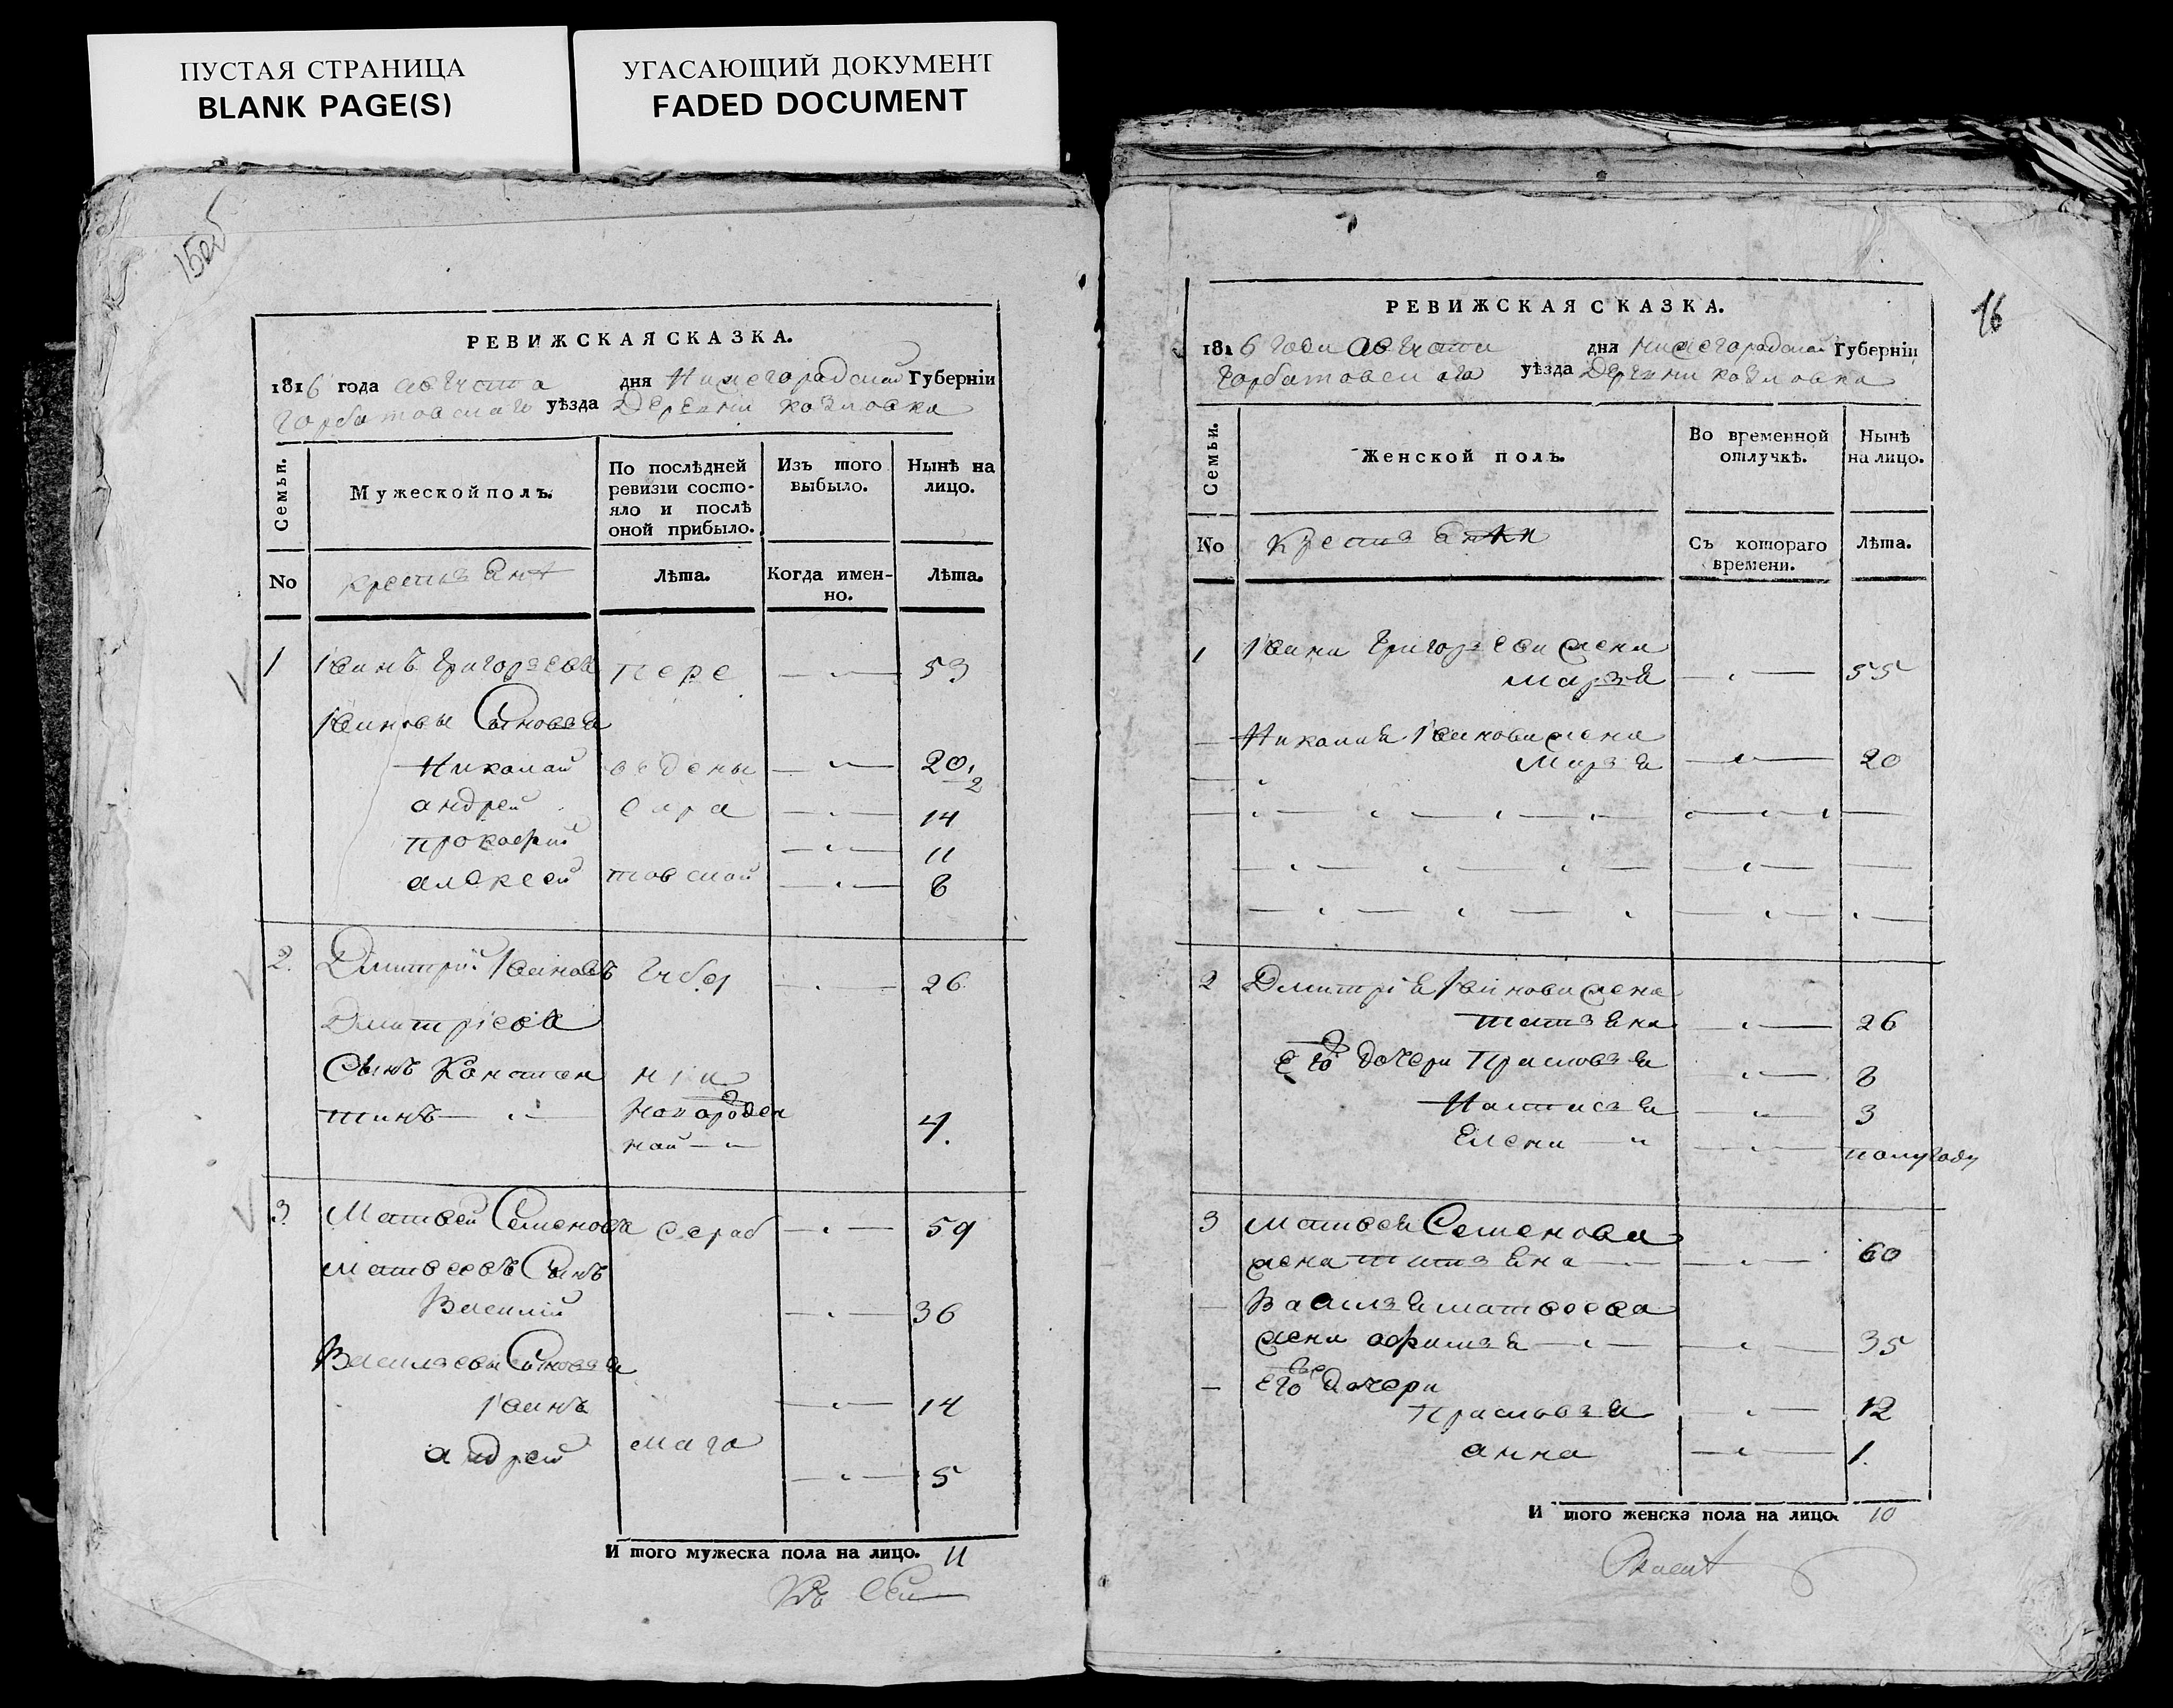 ПУСТАЯ СТРАНИЦА
BLANK PAGE(S)
УГАСАЮЩИЙ ДОКУМЕНТ
FADED DOCUMENT
15об
РЕВИЖСКАЯ СКАЗКА.
1816 года августа дня Нижегородской Губерніи
Горбатовскаго уѣзда Деревни Козловка
Семьи. Мужеской полъ. По послѣдней ревизіи состояло и послѣ оной прибыло. Изъ того выбыло. Нынѣ на лицо.
No крестьянѣ Лѣта. Когда именно. Лѣта.
1 Іванъ Григорьевъ пере — 53
Івановы Сыновья
Николай ведены — 20 1/2
андрей — 14
прокофий — 11
алексей товской — 8
2. Дмитрий Івановъ — 26
Дмитріевъ
Сынъ Констан
тинъ — 4.
новорожден
ной —
3 Матвей Семеновъ — 59
Матвеевъ Сынъ
Василий — 36
Васильевы Сыновья
Іванъ — 14
андрей — 5
И того мужеска пола на лицо. 11
16
РЕВИЖСКАЯ СКАЗКА.
1816 года августа дня Нижегородской Губерніи
Горбатовскаго уѣзда Деревни Козловка
Семьи. Женской полъ. Во временной отлучкѣ. Нынѣ на лицо.
No Крестьянки Съ котораго времени. Лѣта.
1 Івана Григорьева жена
Марья — 55
— Николая Іванова жена
Марья — 20
2 Дмитрія Іванова жена
татьяна — 26
Его дочери Прасковья — 8
Наталья — 3
Елена — полугоду
3 Матвея Семенова
жена татьяна — 60
— Василья матвеева
жена афимья — 35
— Его дочери
Прасковья — 12
анна — 1.
И того женска пола на лицо. 10